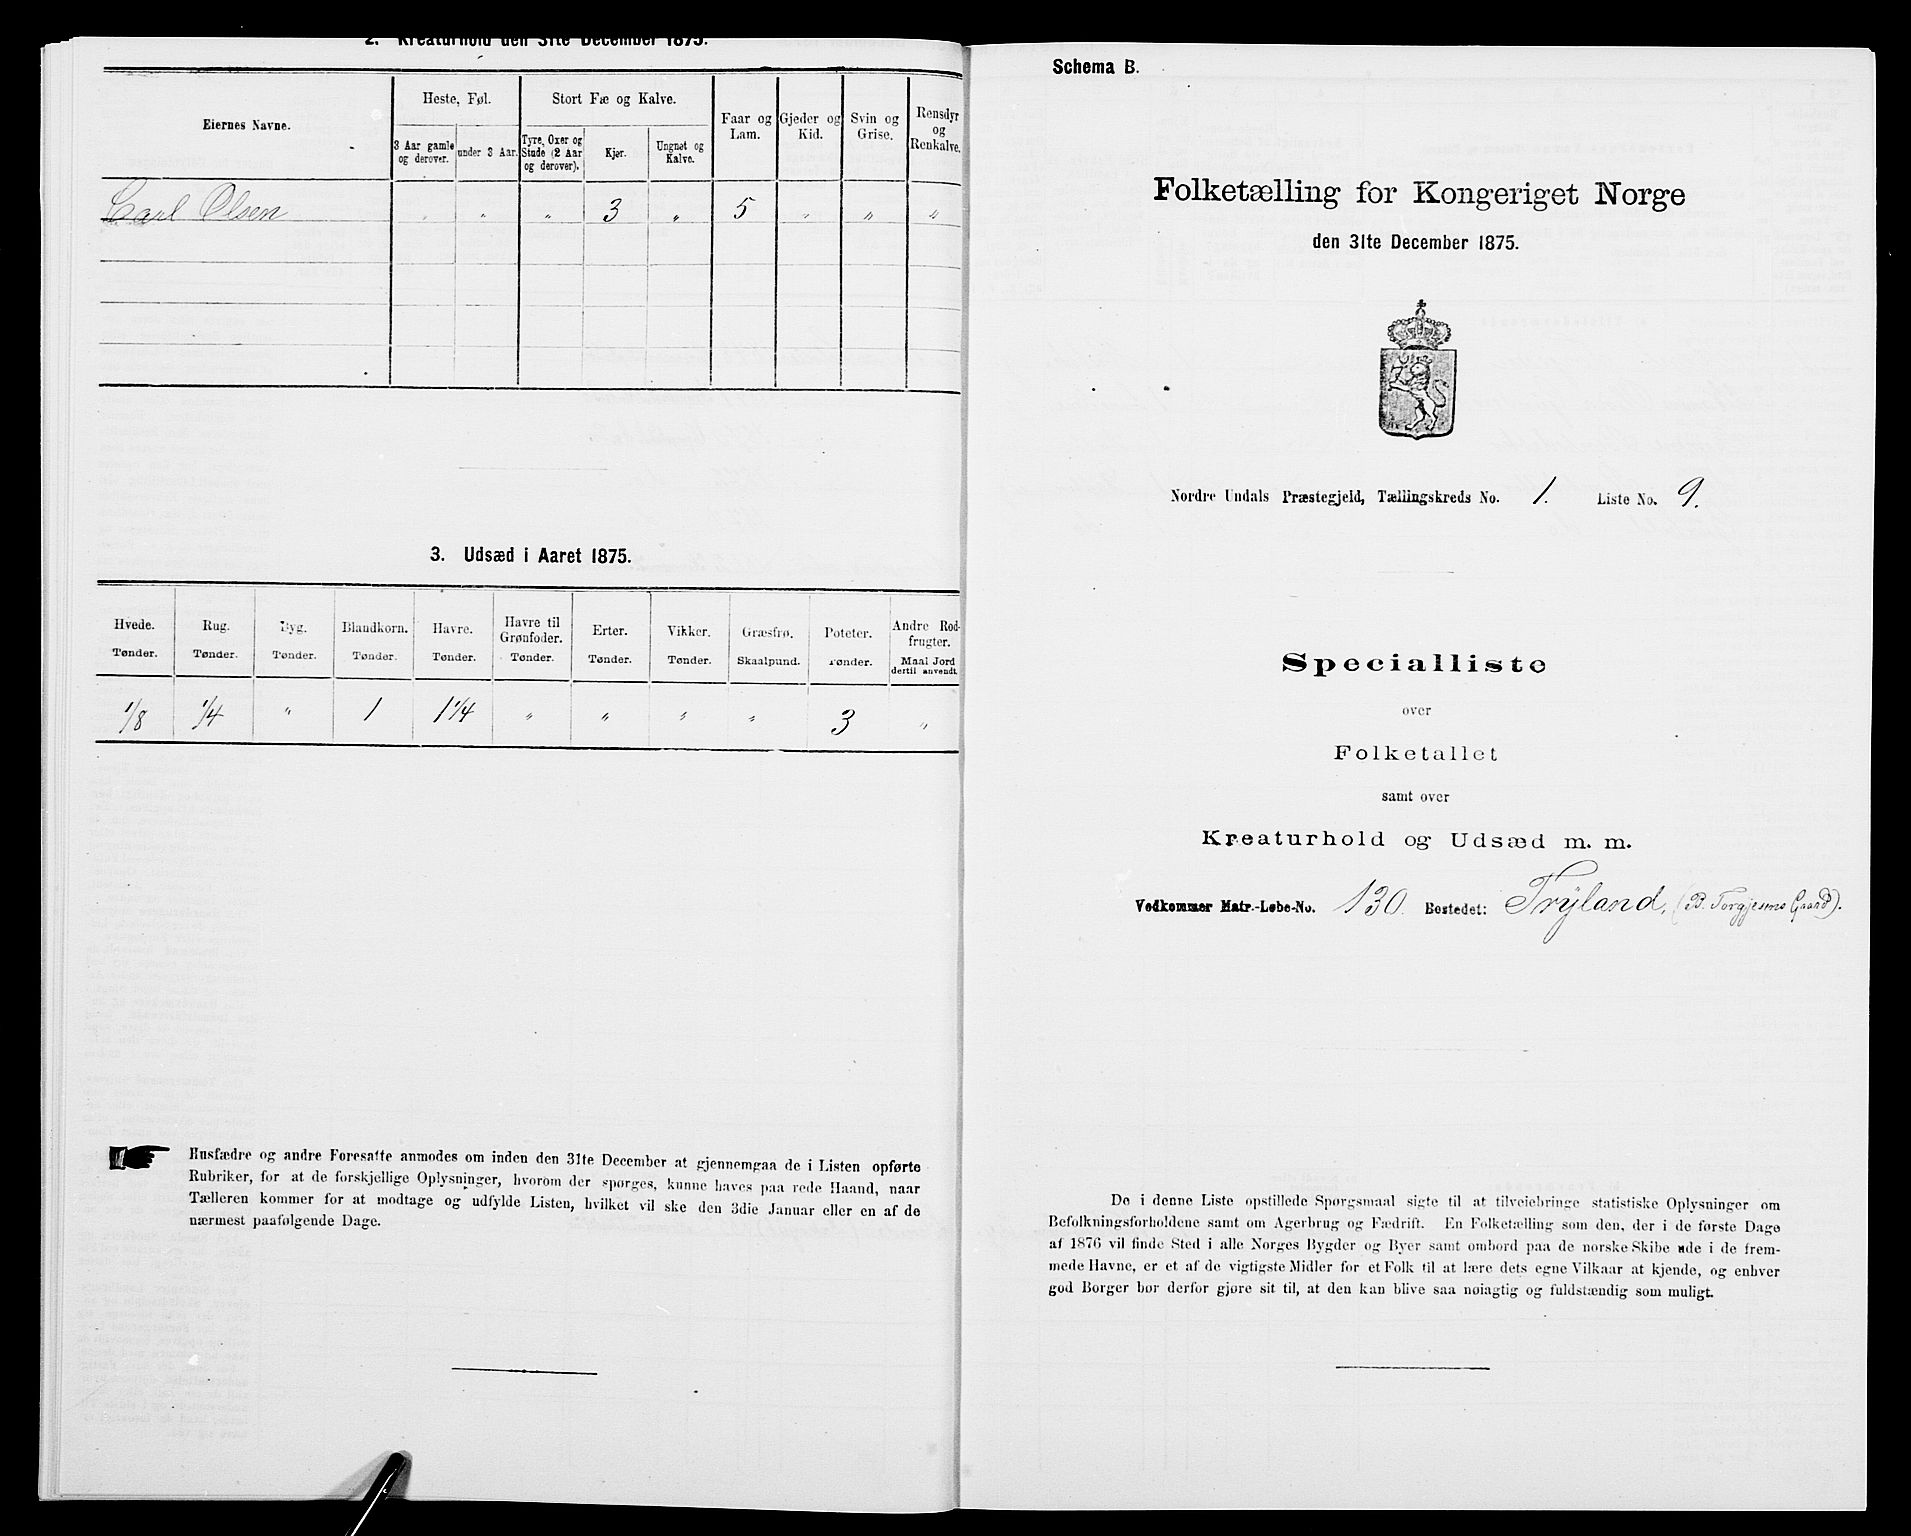 2. Kreaturhold den 31te December 1875.
Eiernes Navne.
Heste, Føl.
Stort Fæ og Kalve.
Faar og Lam.
Gjeder og Kid.
Svin og Grise.
Rensdyr og Renkalve.
3 Aar gamle og derover.
under 3 Aar.
Tyre, Oxer og Stude (2 Aar og derover).
Kjør.
Ungnøt og Kalve.
Carl Olsen " " " 3 " 5 " " "
3. Udsæd i Aaret 1875.
Hvede. Rug. Byg. Blandkorn. Havre. Havre til Grønfoder. Erter. Vikker. Græsfrø. Poteter. Andre Rodfrugter.
Tønder. Tønder. Tønder. Tønder. Tønder. Tønder. Tønder. Tønder. Skaalpund. Tønder. Maal Jord dertil anvendt.
1/8 1/4 " 1 1 1/4 " " " " 3 "
Husfædre og andre Foresatte anmodes om inden den 31te December at gjennemgaa de i Listen opførte
Rubriker, for at de forskjellige Oplysninger, hvorom der spørges, kunne haves paa rede Haand, naar
Tælleren kommer for at modtage og udfylde Listen, hvilket vil ske den 3die Januar eller en af de
nærmest paafølgende Dage.
Schema B.
Folketælling for Kongeriget Norge
den 31te December 1875.
Nordre Undals Præstegjeld, Tællingskreds No. 1. Liste No. 9.
Specialliste
over
Folketallet
samt over
Kreaturhold og Udsæd m. m.
Vedkommer Matr.-Løbe-No. 130. Bostedet: Trÿland, (B. Torgjesens Gaard).
De i denne Liste opstillede Spørgsmaal sigte til at tilveiebringe statistiske Oplysninger om
Befolkningsforholdene samt om Agerbrug og Fædrift. En Folketælling som den, der i de første Dage
af 1876 vil finde Sted i alle Norges Bygder og Byer samt ombord paa de norske Skibe ude i de frem-
mede Havne, er et af de vigtigste Midler for et Folk til at lære dets egne Vilkaar at kjende, og enhver
god Borger bør derfor gjøre sit til, at den kan blive saa nøiagtig og fuldstændig som muligt.